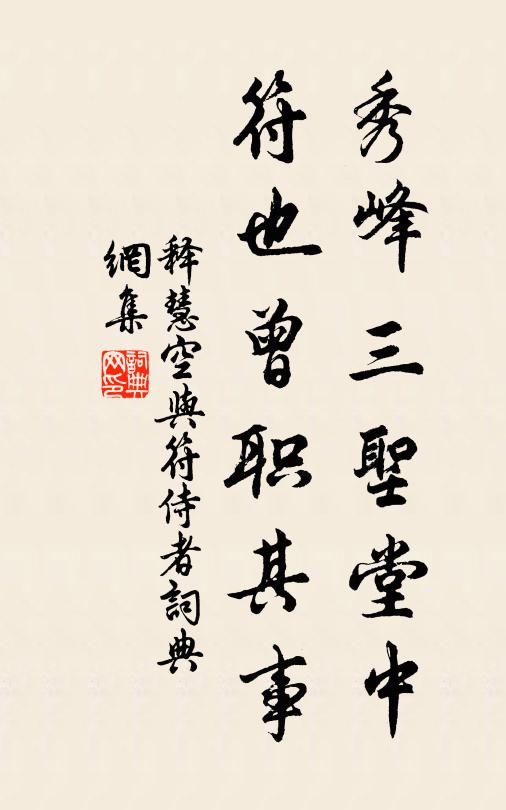 秀峰三聖堂中
符也曾职其事
释慧空與符侍者詞典
網集
詞典
网印